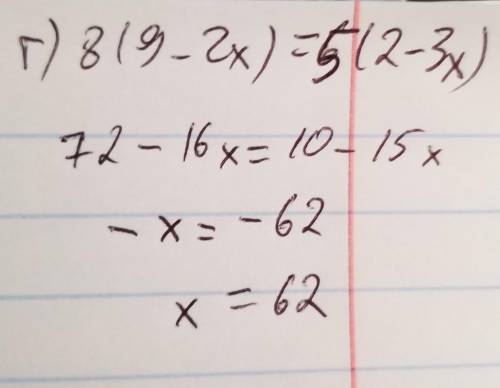 г) 8(9-2x)=5(2-3x)
72-16x=10-15x
-x=-62
x=62